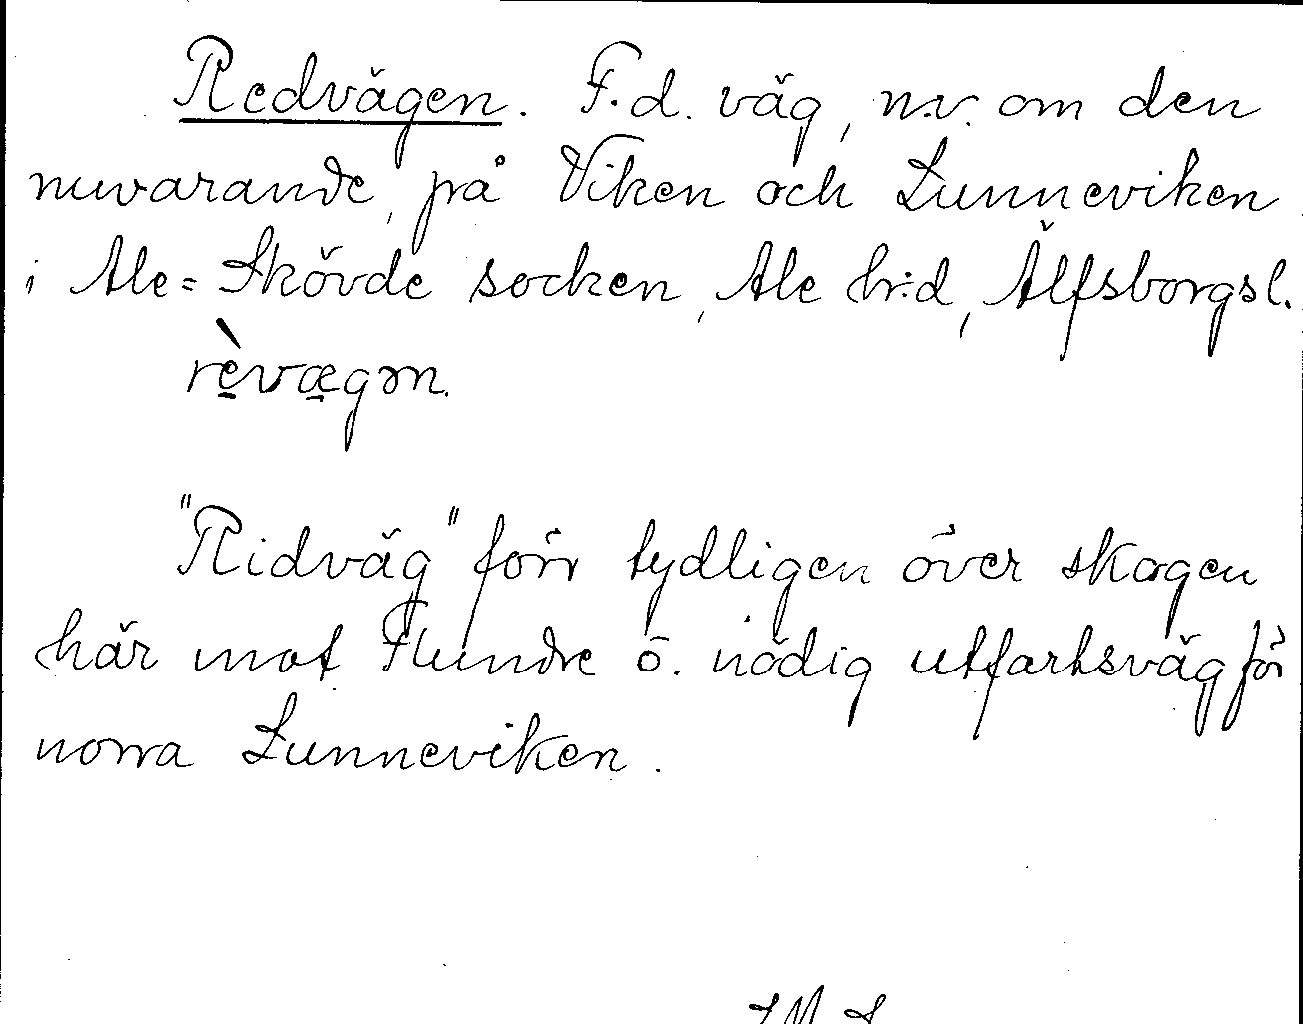 Redvägen. F.d. väg, n.v. om den
nuvarande, på Viken och Lunneviken
i Ale-Skövde socken, Ale hr:d, Älfsborgsl.
rè̱væ̱gən.
"Ridväg" förr tydligen över skogen
här mot Flundre o. nödig utfartsväg för
norra Lunneviken.